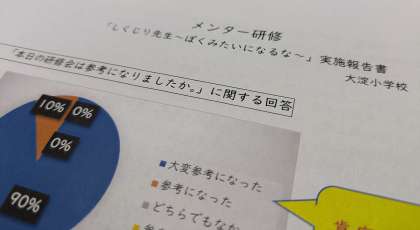 メンター研修
「しくじり先生~ぼくみたいになるな~」実施報告書
大淀小学校
「本日の研修会は参考になりましたか。」に関する回答
10%
0%
0%
90%
大変参考になった
参考になった
どちらでもな